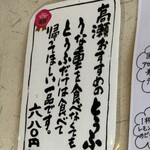 高瀬おすすめのとうふ
うな重を食べなくても
とうふだけは食べて
帰ってほしい一品です。
六八〇円